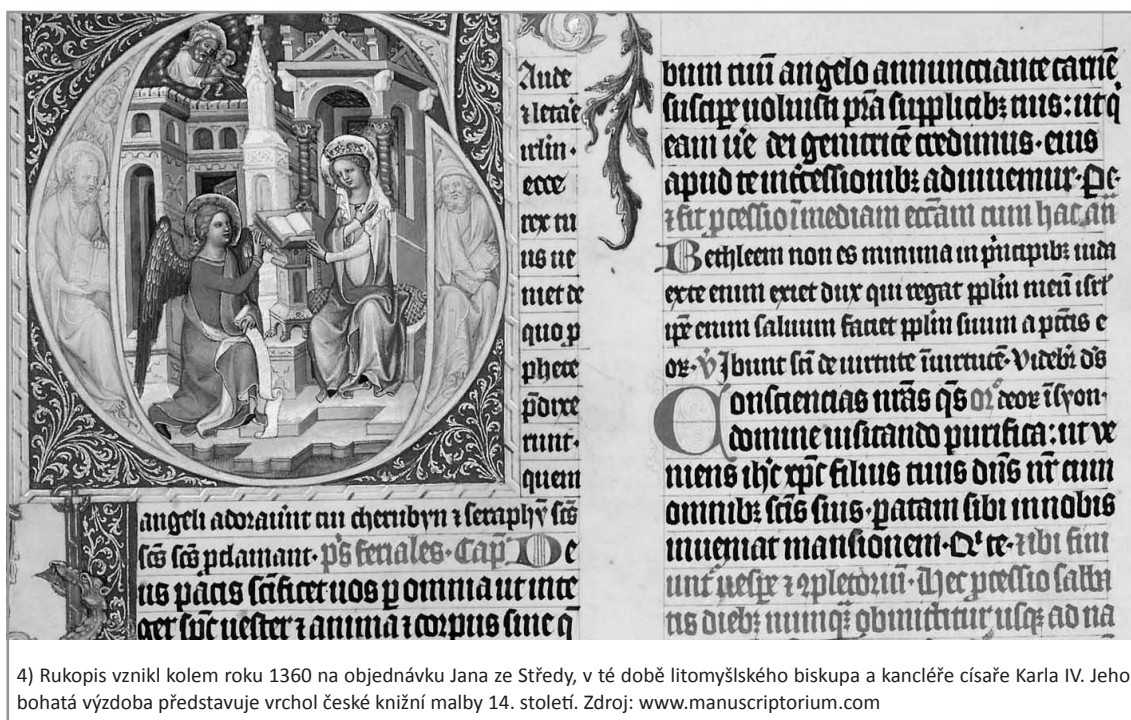 Aude
⁊ letaē
irlm̄·
ecce
rex tu
us ue
niet de
quo p
phete
p̄dixe
runt·
quem
angeli adorauīnt cui cherubyn ⁊ seraphȳ sc̄s
sc̄s sc̄s ꝓclamant· p̄s feriales· Cap̄ De
us pacis sc̄ificet uos ꝑ omnia ut inte
ger sp̄c uester ⁊ anima ⁊ corpus sine q̄
bum tuū angelo annunciante carnē
suscipe uoluisti p̄ta supplicibꝫ tuis: ut q̄
eam ūe dei genitricē credimus· eius
apud te īt̄cessionibꝫ adiuuemur· Pe·
⁊ fit ꝓcessio ī mediam ecc̄am cum hac an̄
Bethleem non es minima in p̄ncipibꝫ iuda
ex te enim exiet dux qui regat pp̄lm meū isrl̄
ip̄e enim saluum faciet pp̄lm suum a pc̄tis e
oꝝ· V̄ Ibunt sc̄i de uirtute ī uirtutē· Videbit̄ d̄s
Consciencias nr̄as q̄s or̄ deoꝝ ī syon·
domine uisitando purifica: ut ve
niens ih̄c xp̄c filius tuus dn̄s nr̄ cum
omnibꝫ sc̄is suis· ꝑatam sibi in nobis
inueniat mansionem· Q' te· ⁊ ibi fini
unt̄ uesꝑe ⁊ ꝯpletoriū· Hec ꝓcessio sabba
tis diebꝫ numqꝫ obmittitur usqꝫ ad na
4) Rukopis vznikl kolem roku 1360 na objednávku Jana ze Středy, v té době litomyšlského biskupa a kancléře císaře Karla IV. Jeho
bohatá výzdoba představuje vrchol české knižní malby 14. století. Zdroj: www.manuscriptorium.com